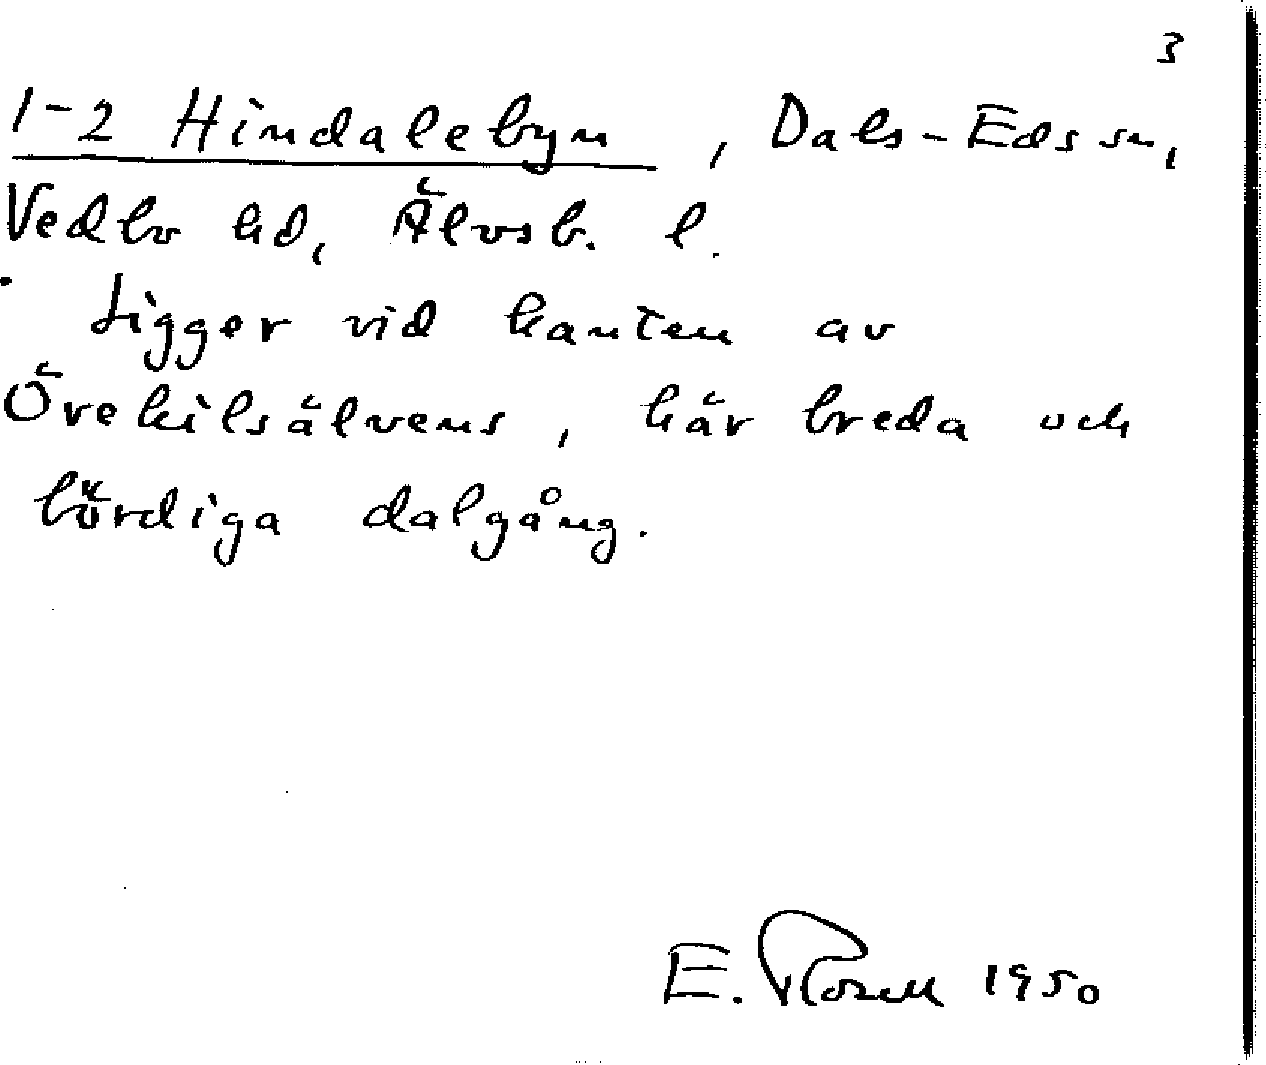 3
1-2 Hindalebyn, Dals-Eds sn,
Vedbo hd, Älvsb. l.
Ligger vid kanten av
Örekilsälvens, här breda och
bördiga dalgång.
E. Rosell 1950